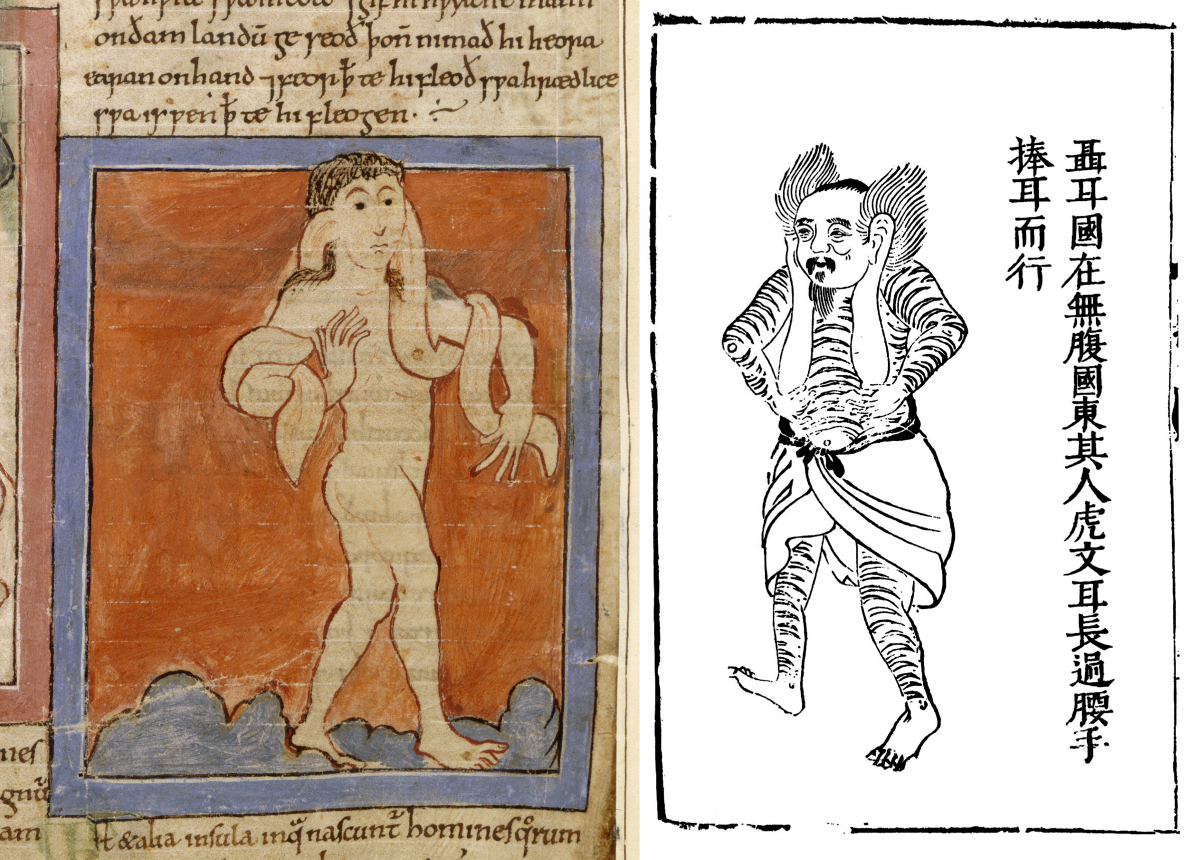 onðam landū ge seoð þoñ nimað hi heora
earan on hand ⁊ feorꝥ te hi fleoð swa hrædlice
swa is wen ꝥ te hi fleogen.
Est & alia insula inq̄ nascunt̄ homines q̄rum
聶耳國在無腹國東其人虎文耳長過腰手
捧耳而行